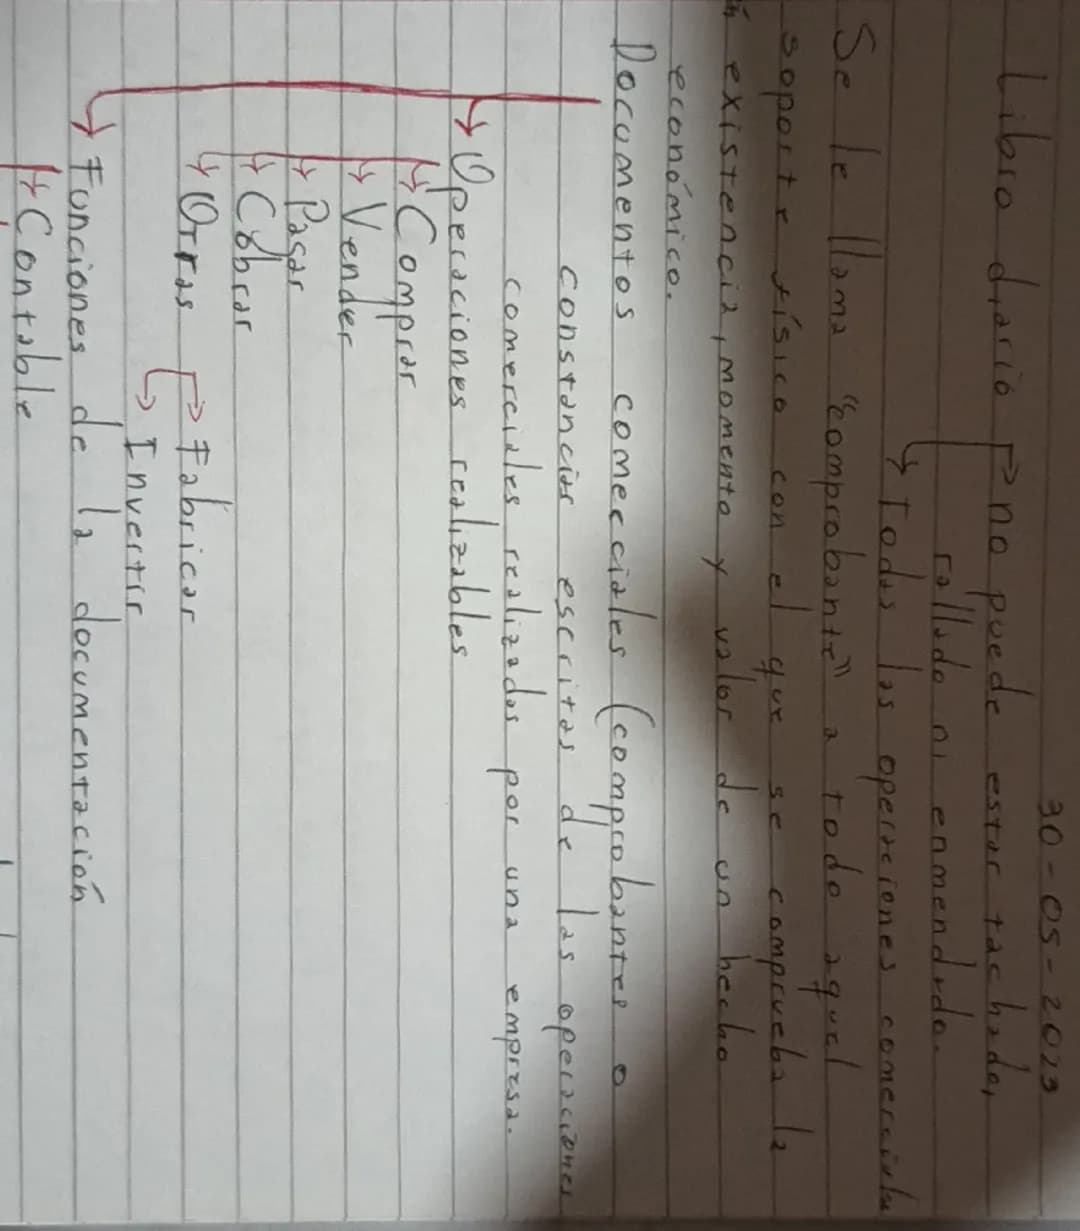 30-05-2023
Libro diario no puede estar tachado,
rallado ni enmendado.
Todas las operaciones
Se le llama "comprobante" a todo aquel
soporte físico con el que se comprueba la
existencia, momento y valor de un hecho
económico.
Documentos comerciales (comprobantes o
constancias escritas de las operaciones
comerciales realizadas por una empresa.
Operaciones realizables
Comprar
Vender
Pagar
Cobrar
Otras Fabricar
Invertir
Funciones de la documentación
Contable